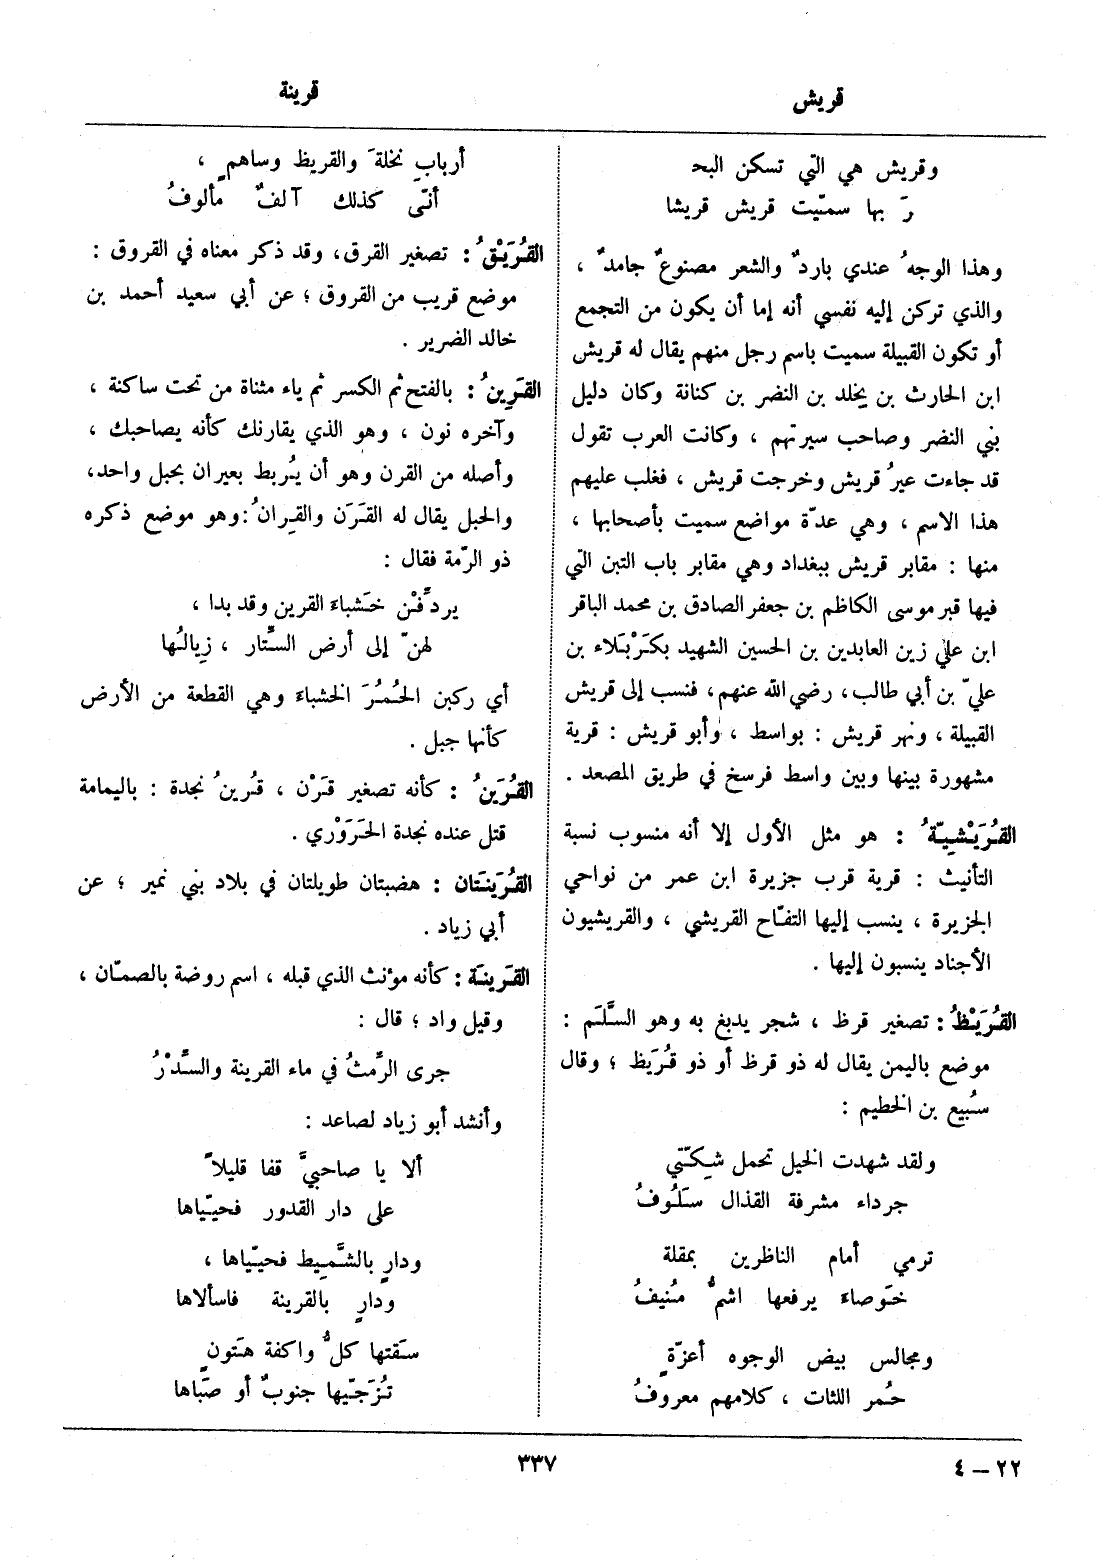 قريش
قرينة
وقريش هي التي تسكن البحـ
ـرَ بها سمّيت قريش قريشا
وهذا الوجهُ عندي باردٌ والشعر مصنوعٌ جامدٌ ،
والذي تركن إليه نفسي أنه إما أن يكون من التجمع
أو تكون القبيلة سميت باسم رجل منهم يقال له قريش
ابن الحارث بن يخلد بن النضر بن كنانة وكان دليل
بني النضر وصاحب سيرتهم ، وكانت العرب تقول
قد جاءت عيرُ قريش وخرجت قريش ، فغلب عليهم
هذا الاسم ، وهي عدّة مواضع سميت بأصحابها ،
منها : مقابر قريش ببغداد وهي مقابر باب التبن التي
فيها قبر موسى الكاظم بن جعفر الصادق بن محمد الباقر
ابن علي زين العابدين بن الحسين الشهيد بكَرْبَلاء بن
عليّ بن أبي طالب ، رضي الله عنهم ، فنسب إلى قريش
القبيلة ، ونهر قريش : بواسط ، وأبو قريش : قرية
مشهورة بينها وبين واسط فرسخ في طريق المصعد .
القُرَيْشِيّةُ : هو مثل الأول إلا أنه منسوب نسبة
التأنيث : قرية قرب جزيرة ابن عمر من نواحي
الجزيرة ، ينسب إليها التفّاح القريشي ، والقريشيون
الأجناد ينسبون إليها .
القُرَيْظُ : تصغير قرظ ، شجر يدبغ به وهو السَّلَم :
موضع باليمن يقال له ذو قرظ أو ذو قُرَيظ ؛ وقال
سُبيع بن الخطيم :
ولقد شهدت الخيل تحمل شِكّتي
جرداء مشرفة القذال سَلُوفُ
ترمي أمام الناظرين بمقلة
خَوصاءَ يرفعها اشمُّ مُنيفُ
ومجالس بيض الوجوه أعزّةٍ
حُمر اللثات ، كلامهم معروفُ
أربابِ نخلةَ والقريظ وساهمٍ ،
أنّى كذلك آلفٌ مألوفُ
القُرَيْقُ : تصغير القرق ، وقد ذكر معناه في القروق :
موضع قريب من القروق ؛ عن أبي سعيد أحمد بن
خالد الضرير .
القَرِينُ : بالفتح ثم الكسر ثم ياء مثناة من تحت ساكنة ،
وآخره نون ، وهو الذي يقارنك كأنه يصاحبك ،
وأصله من القرن وهو أن يُربط بعيران بحبل واحد ،
والحبل يقال له القَرَن والقِرانُ : وهو موضع ذكره
ذو الرّمة فقال :
يردِّفْن خَشباءَ القرين وقد بدا ،
لهنّ إلى أرض السِّتار ، زِيالُها
أي ركبن الحُمُرَ الخشباءَ وهي القطعة من الأرض
كأنها جبل .
القُرَينُ : كأنه تصغير قَرْن ، قُرينُ نجدة : باليمامة
قتل عنده نجدة الحَرَوْري .
القُرَينَتان : هضبتان طويلتان في بلاد بني نمير ؛ عن
أبي زياد .
القَرينَة : كأنه مؤنث الذي قبله ، اسم روضة بالصمّان ،
وقيل واد ؛ قال :
جرى الرَّمثُ في ماء القرينة والسَّدْرُ
وأنشد أبو زياد لصاعد :
ألا يا صاحبيَّ قفا قليلاً
على دار القدور فحيّياها
ودارٍ بالشَّمِيط فحيّياها ،
ودارٍ بالقرينة فاسألاها
سَقتها كلُّ واكفة هَتونٍ
تُزَجّيها جنوبٌ أو صَباها
٣٣٧
٢٢ – ٤